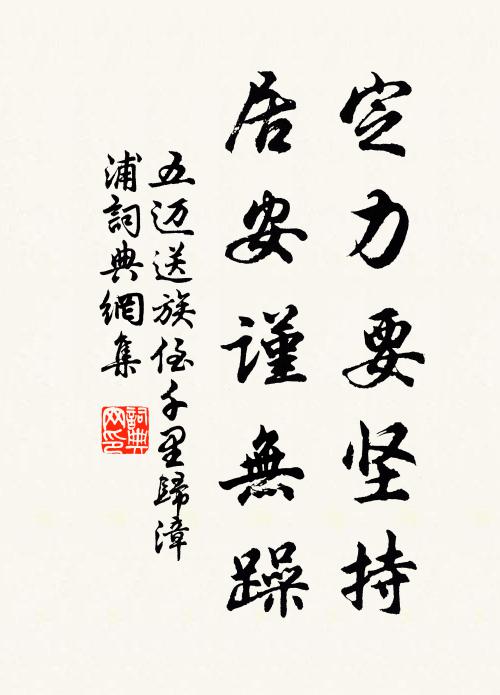 定力要坚持
居安谨無躁
五迈送族侄千里歸漳
浦詞典網集
詞典网印